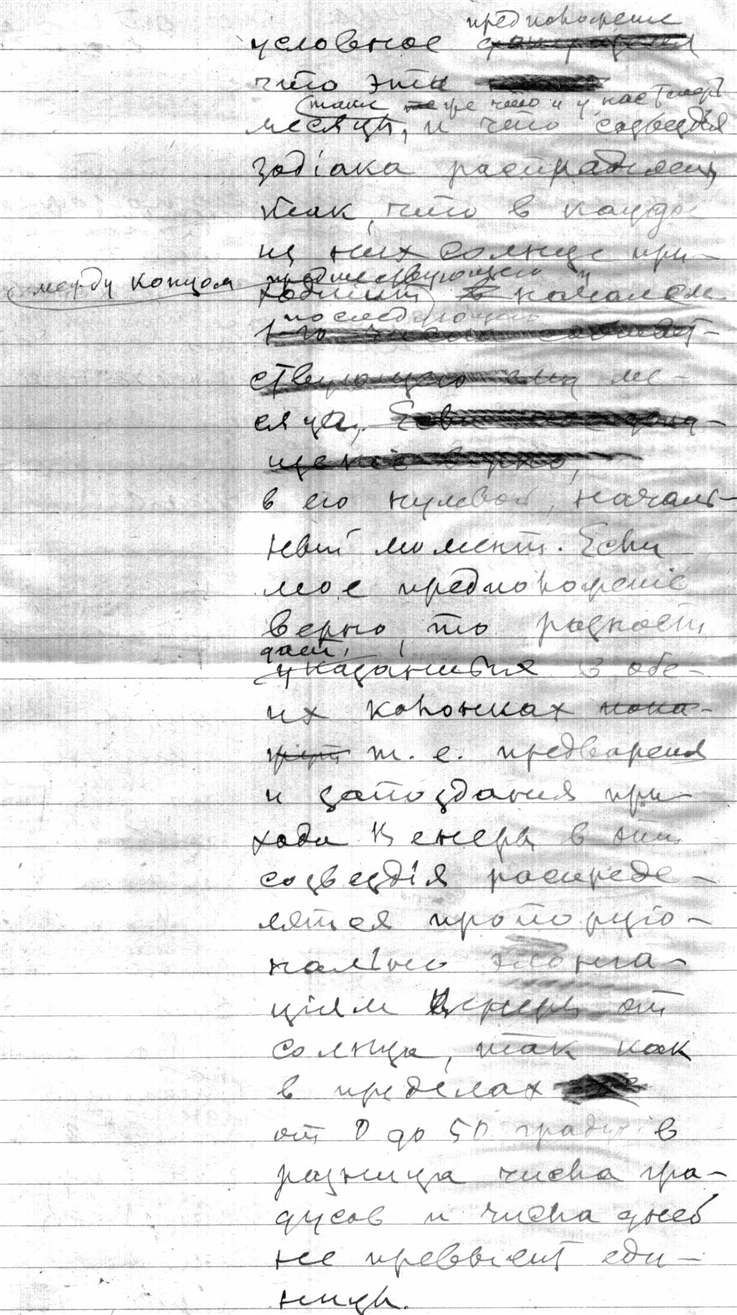 предположение
условное
что эти
такие же что и у нас теперь
месяцы, и что созвездия
зодіака распределены
так, что в каждое
из них солнце при-
между концом предшествующего и
ходит в началом
последующего
ствующего ему ме-
сяца, Если
щеніе верно,
в его нулевой, началь-
ный момент. Если
мое предположеніе
верно, то разность
дат,
указанная в обе-
их колонках пока-
жут т. е. предварения
и запоздания при-
хода Венеры в эти
созвездія распреде-
лятся пропорціо-
нально элонга-
ціям Венеры от
солнца, так как
в пределах
от 0 до 50 градусов
разница числа гра-
дусов и числа дней
не превысит еди-
ницы.